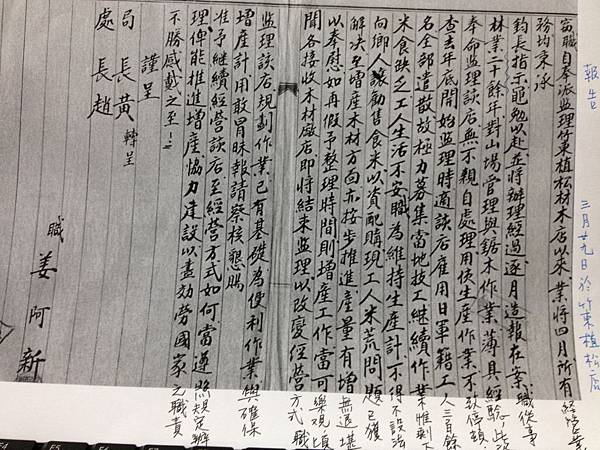 報告 三月廿九日於竹東植松店
窃職自奉派監理竹東植松材木店以來業將四月所有經營業
務均秉承
鈞長指示黽勉以赴並將辦理經過逐月造報在案職從事
林業二十餘年對山場管理與鋸木作業薄具經驗此次
奉命監理該店無不親自處理用使生產作業不致停頓
查去年底開始監理時適該店雇用日軍籍工人三百餘
名全部遣散故極力募集當地技工繼續作業惟剩下
米食缺乏工人生活不安職為維持生產計不得不設法
向鄉人讓勸售食米以資配購現工人米荒問題已獲
解決至增產木材方面亦按步推進產量有增無退堪
以奉慰如再假予整理時間則增產工作當可樂觀頃
聞各接收木材廠店即將結束監理以改變經營方式職
監理該店規劃作業已有基礎為便利作業與確保
增產計用敢冒昧報請察核懇賜
准予繼續經營該店至經營方式如何當遵照規定辦
理俾能推進增產協力建設以盡効勞國家之職責
不勝感戴之至
謹呈
局長黃 轉呈
處長趙
職 姜阿新
F4 F5 F6 F7 F8